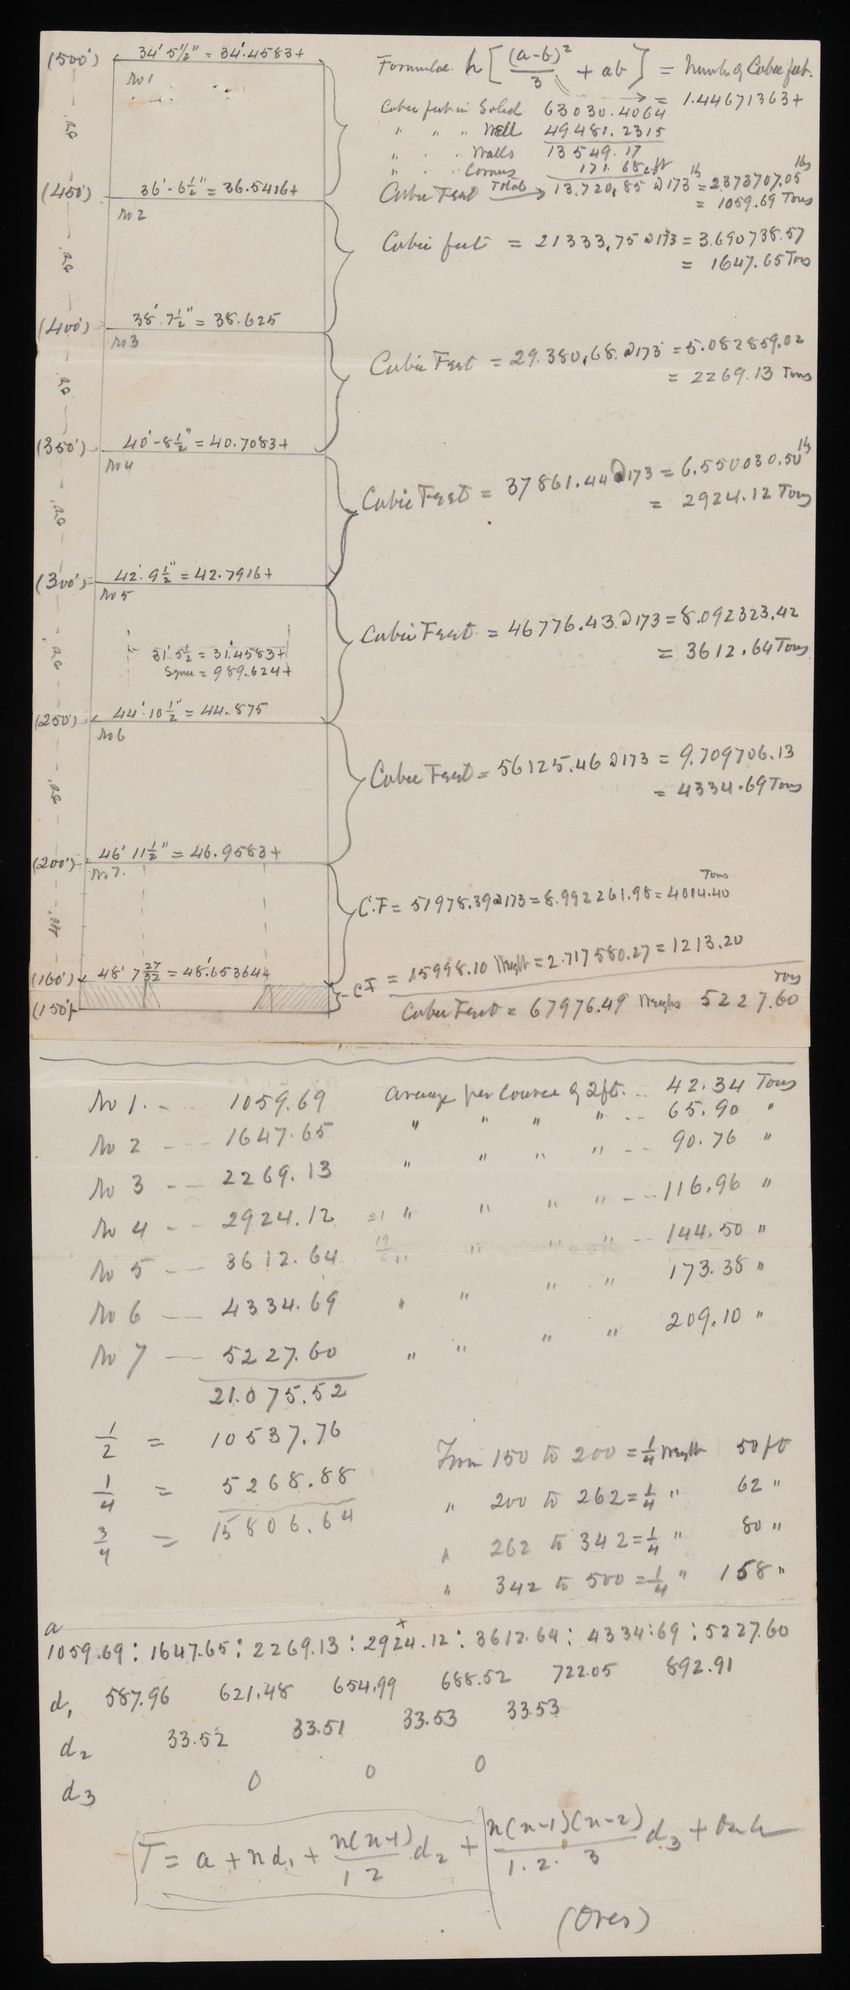 (500') 34' 5½" = 34'.4583+
No 1
Formulae. h [ (a-b)²/3 + ab ] = Number of Cubic feet.
= 1.44671363+
Cubic feet in Solid 63030.4064
" " " Well 49481.2315
" " " Walls 13549.17
" " " Corners 171.68 cft
50'
(450') 36'-6½" = 36.5416+
No 2
Cubic Feet Total → 13.720,85 @173 lb = 2373707.05 lbs
= 1059.69 Tons
Cubic feet = 21333,75 @173 = 3.690738.57
= 1647.65 Tons
50'
(400') 38'.7½" = 38.625
No 3
Cubic Feet = 29.380,68. @173 = 5.082859.02
= 2269.13 Tons
50'
(350') 40'-8½" = 40.7083+
No 4
Cubic Feet = 37861.44 @173 = 6.550030.50 lb
= 2924.12 Tons
50'
(300') 42'.9½" = 42.7916+
No 5
31'.5½ = 31'.4583+
Square = 989.624+
Cubic Feet = 46776.43 @173 = 8.092323.42
= 3612.64 Tons
50'
(250') 44'.10½" = 44.875
No 6
Cubic Feet = 56125.46 @173 = 9.709706.13
= 4334.69 Tons
50'
(200') 46' 11½" = 46.9583+
No 7.
C.F = 51978.39 @173 = 8.992261.98 = 4014.40 Tons
40'
(160') 48' 7 27/32 = 48'.653644
C F = 15998.10 Weight = 2.717580.27 = 1213.20
(150')
Cubic Feet = 67976.49 Weighs 5227.60 Tons
No 1. - 1059.69 average per Course of 2ft. .. 42.34 Tons
No 2 - - 1647.65 " " " " - .. 65.90 "
No 3 - - 2269.13 " " " " - - 90.76 "
No 4 - - 2924.12 21 " " " " - - 116.96 "
No 5 - - 3612.64 " " " " - 144.50 "
No 6 - - 4334.69 " " " " 173.38 "
No 7 - 5227.60 " " " " 209.10 "
21.075.52
1/2 = 10537.76
1/4 = 5268.88
3/4 = 15806.64
From 150 to 200 = ¼ Weight 50 ft
" 200 to 262 = ¼ " 62 "
" 262 to 342 = ¼ " 80 "
" 342 to 500 = ¼ " 158 "
a
1059.69 : 1647.65 : 2269.13 : 2924.12 : 3612.64 : 4334.69 : 5227.60
d₁ 587.96 621.48 654.99 688.52 722.05 892.91
d₂ 33.52 33.51 33.53 33.53
d₃ 0 0 0
T = a + nd₁ + n(n-1)/1 2 d₂ + n(n-1)(n-2)/1. 2. 3 d₃ +
(Over)